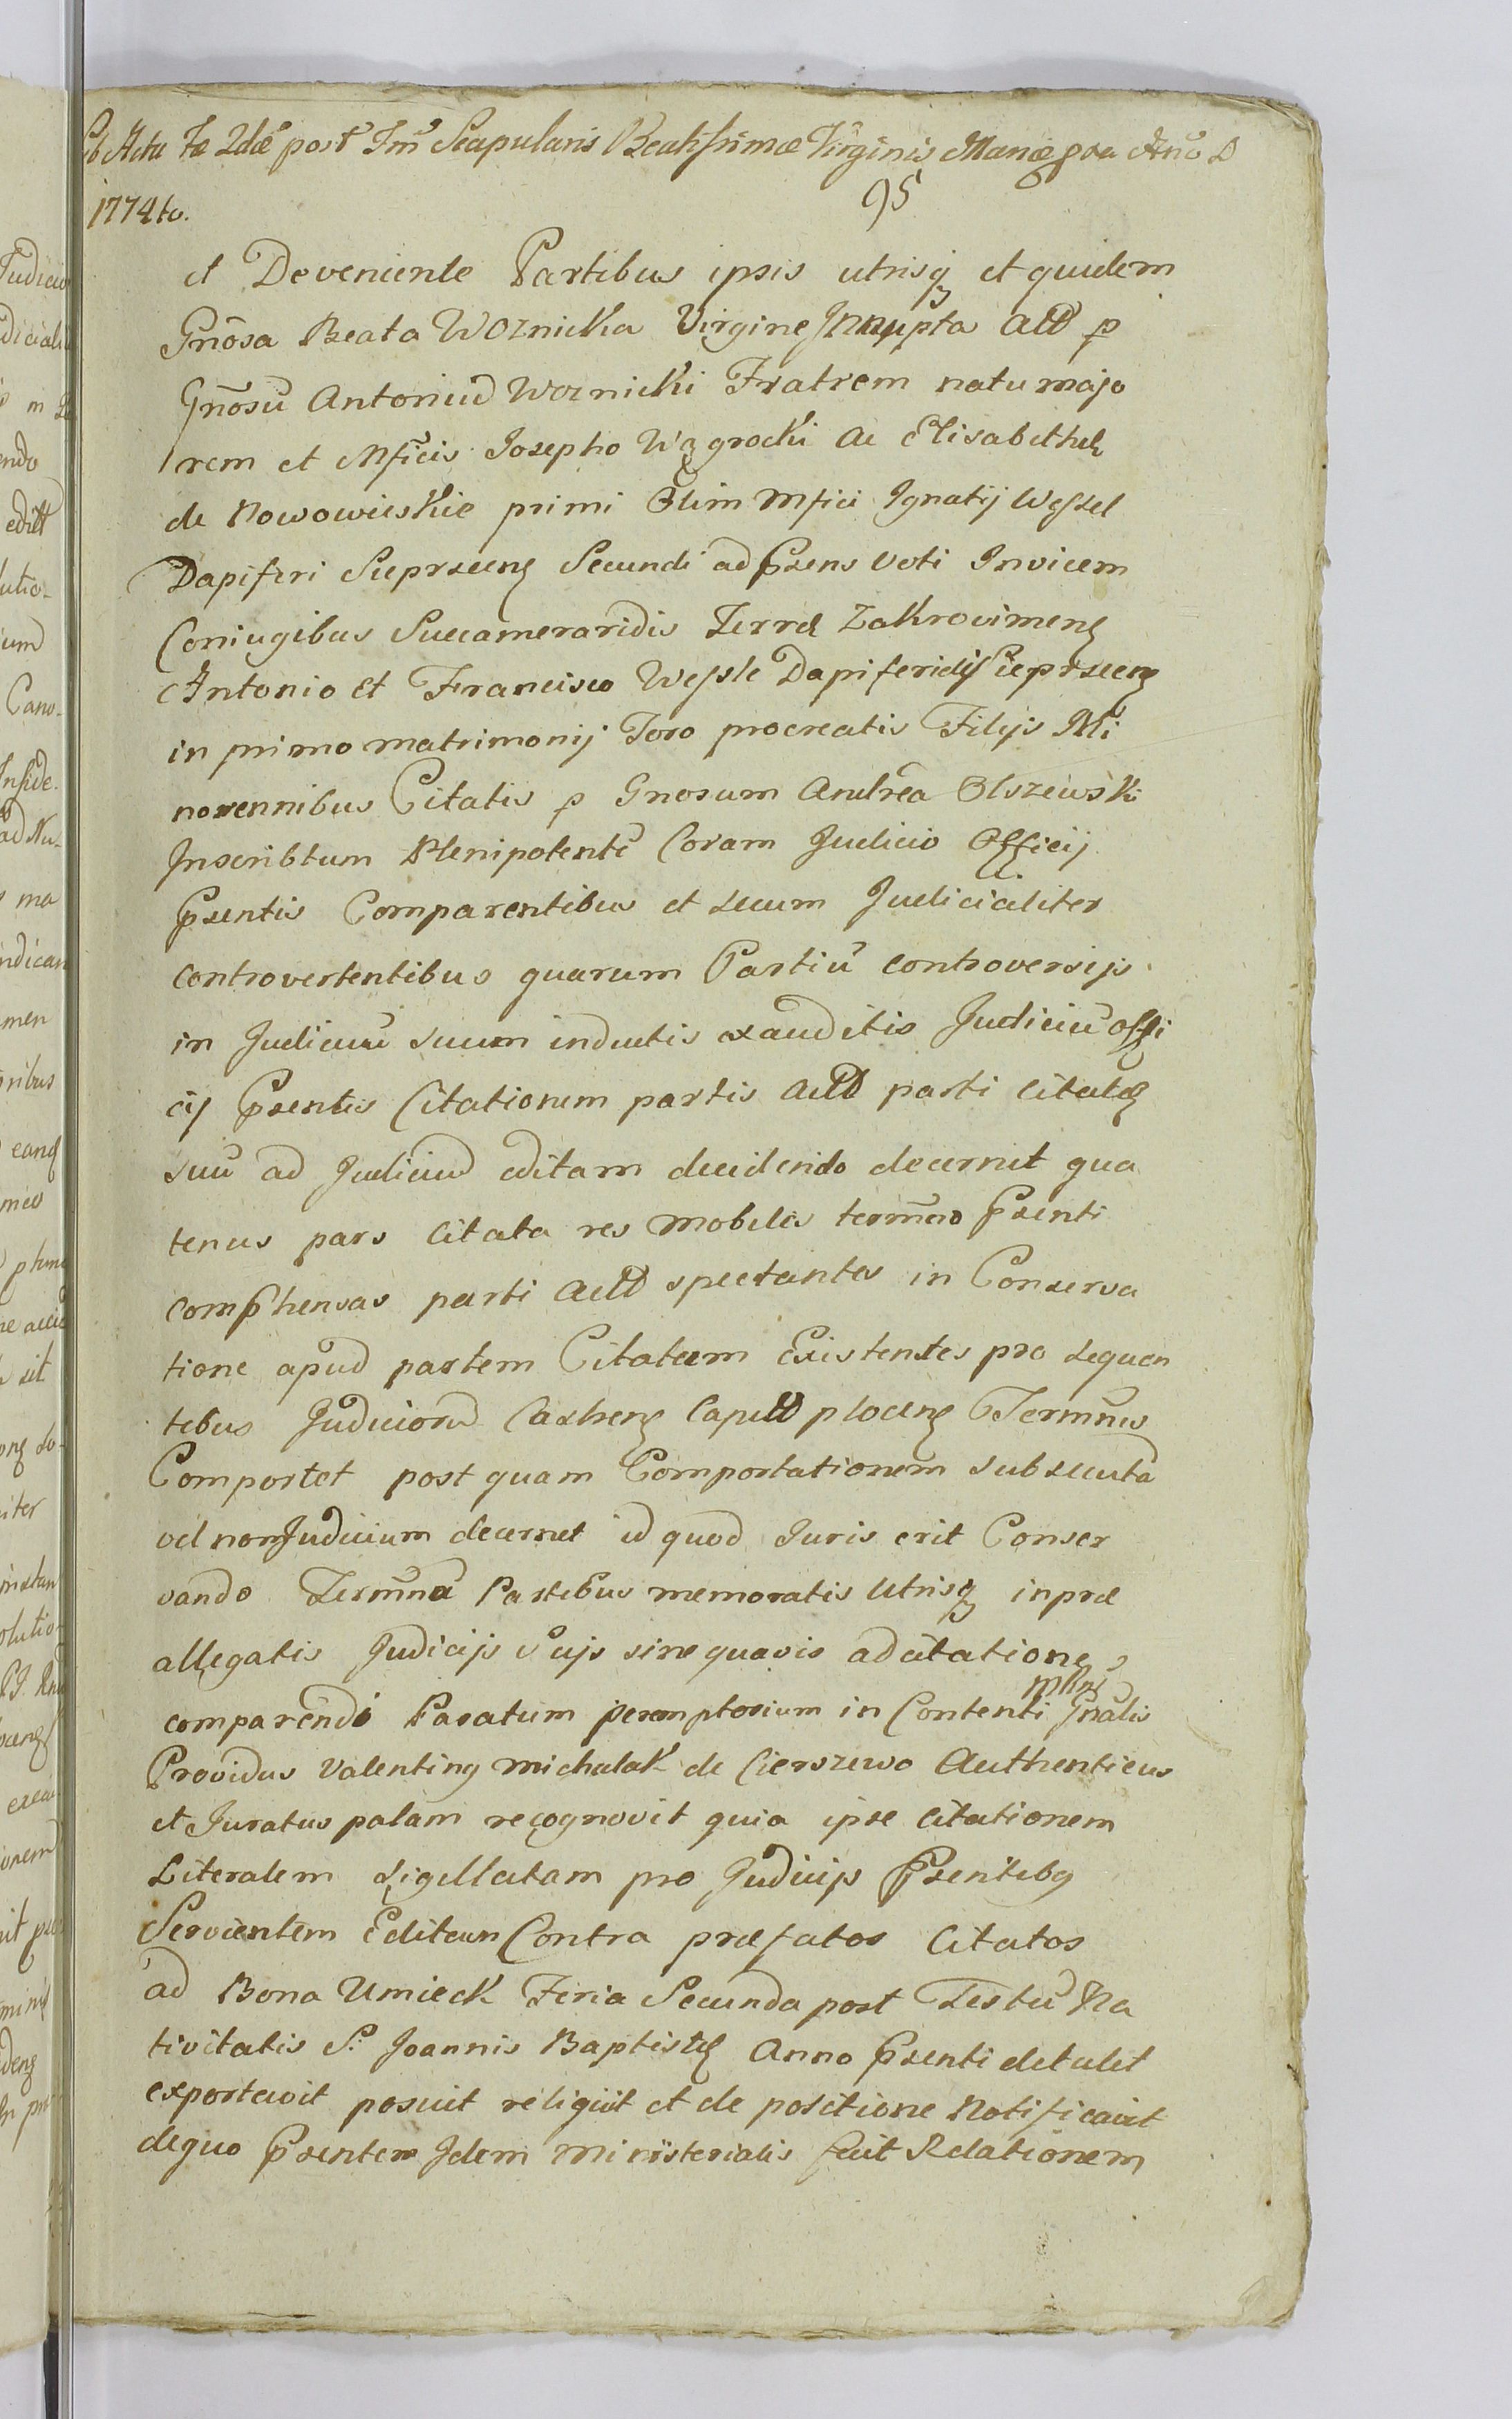 Ob Acta Fa 2dâ post Fm̃ Scapularis Beatissimæ Virginis Mariæ pxa Año D
1774to.
95
et Deveniente Partibus ipsis utrisq et quidem
Gnõsa Beata Woznicka Virgine Innupta Act p
Gnõsũ Antoniũ Woznicki Fratrem natu majo
rem et Mficis Josepho Wągrocki ac Elisabetha
de Nowowieskie primi Olim Mfici Ignatij Wessel
Dapiferi Sieprscen Secundi ad Psens Voti Invicem
Coniugibus Succameraridis Terræ Zakrocimen
Antonio et Francisco Wessle Dapiferidis Sieprscen
in primo matrimonij Toro procreatis Filijs Mi
norennibus Citatis p Gnosum Andrea Olszewski
Inscribtum Plenipotentẽ Coram Judicio Officij
Psentis Comparentibus et secum Judicialiter
controvertentibus quarum Partiũ controversijs
in Judiciũ suum inductis exauditis Judiciũ offi
cij Psentis Citationem partis Act parti Citatæ
suũ ad Judiciũ editam decidendo decernit qua
tenus pars Citata res mobiles termino Psenti
comphensas parti Act spectantes in Conserva
tione apud partem Citatam Existentes pro sequen
tibus Judiciorũ Castren Capit plocen Termĩnis
Comportet post quam Comportationem subsecutã
vel non Judicium decernet id quod Juris erit Conser
vando Termĩnũ Partibus memoratis Utrisq inpræ
allegatis Judicijs Suis sine quavis adcitatione
comparendi Paratum peremptorium in Contenti
Mlris Gnãlis
Providus Valentinq Michalak de Cierszewo Authenticus
et Juratus palam recognovit quia ipse Citationem
Literalem Sigillatam pro Judicijs Psentibq
Servientem Editam Contra præfatos Citatos
ad Bona Umieck Feria Secunda post Festũ Na
tivitatis S. Joannis Baptistæ Anno Psenti detulit
exportavit posuit reliquit et de positione Notificavit
dequo Psentem Idem Ministerialis fecit Relationem